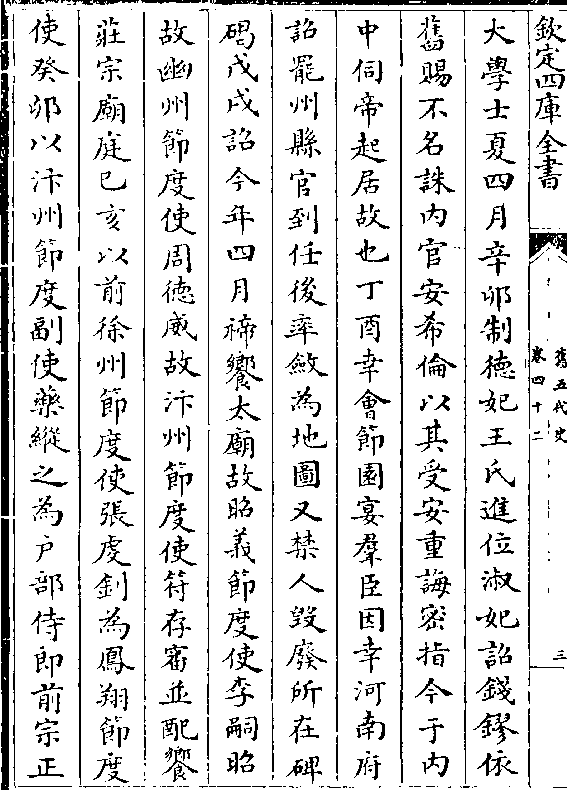 欽定四庫全書
舊五代史
卷四十二
三
大學士夏四月辛卯制德妃王氏進位淑妃詔錢鏐依
舊賜不名誅内官安希倫以其受安重誨密指令于内
中伺帝起居故也丁酉幸會節園宴羣臣因幸河南府
詔罷州縣官到任後率斂為地圖又禁人毀廢所在碑
碣戊戌詔今年四月禘饗太廟故昭義節度使李嗣昭
故幽州節度使周德威故汴州節度使符存審並配饗
莊宗廟庭己亥以前徐州節度使張虔釗為鳳翔節度
使癸卯以汴州節度副使藥縱之為户部侍郎前宗正